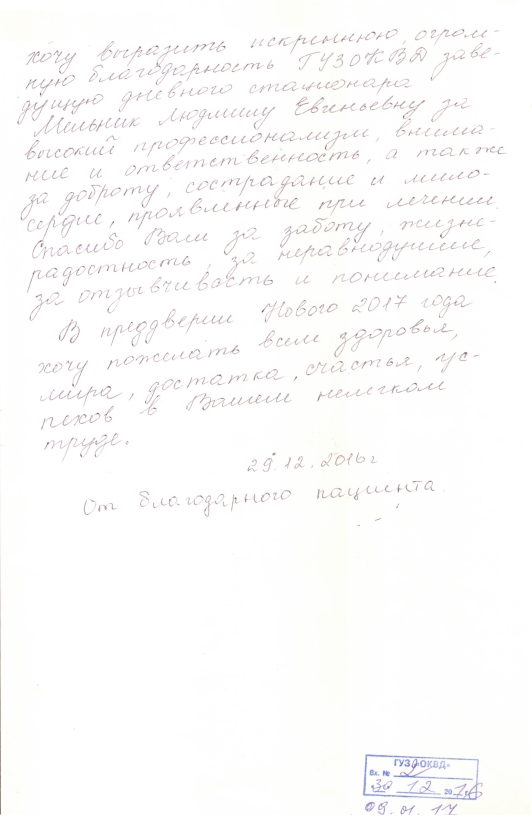 хочу выразить искреннюю, огром-
ную благодарность ГУЗОКВД заве-
дущую дневного стационара
Мельник Людмилу Евгеньевну за
высокий профессионализм, внима-
ние и ответственность, а также
за доброту, сострадание и мило-
сердие, проявленные при лечении.
Спасибо Вам за заботу, жизне-
радостность, за неравнодушие,
за отзывчивость и понимание.
В преддверии Нового 2017 года
хочу пожелать всем здоровья,
мира, достатка, счастья, ус-
пехов в Вашем нелегком
труде.
29.12.2016г
От благодарного пациента.
ГУЗ «ОКВД»
Вх. №
30 12 2016
09.01.17